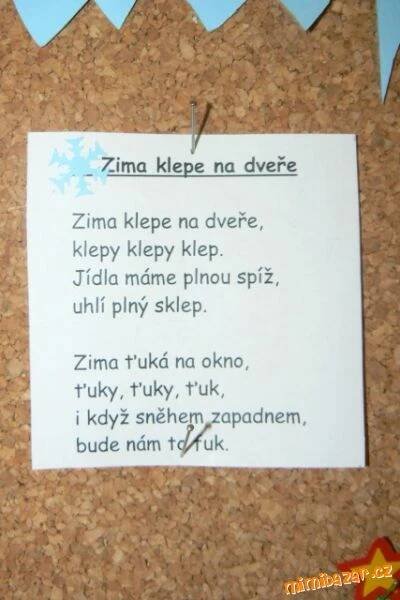 Zima klepe na dveře
Zima klepe na dveře,
klepy klepy klep.
Jídla máme plnou spíž,
uhlí plný sklep.
Zima ťuká na okno,
ťuky, ťuky, ťuk,
i když sněhem zapadnem,
bude nám to fuk.
mimibazar.cz